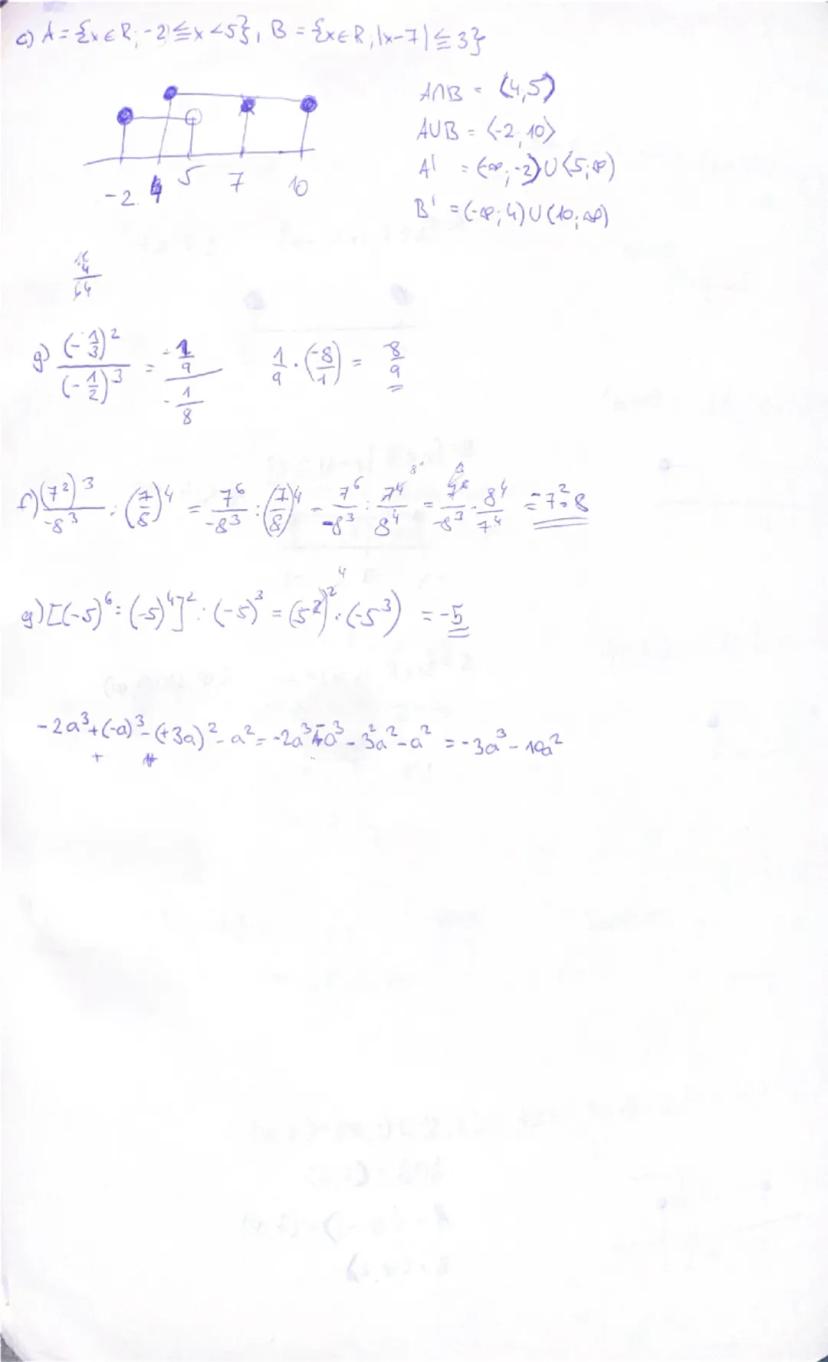 c) A = {x∈R; -2 ≦ x < 5}, B = {x∈R, |x-7| ≦ 3}
A∩B = ⟨4,5)
A∪B = ⟨-2, 10⟩
A' = (-∞; -2) ∪ ⟨5; ∞)
B' = (-∞; 4) ∪ (10; ∞)
-2 4 5 7 10
4/64
g) (-1/3)²/(-1/2)³ = (-1/9)/(-1/8) 1/9 · (-8/1) = 8/9
(7²)³/-8³ : (7/8)⁴ = 7⁶/-8³ : (7/8)⁴ = 7⁶/-8³ : 7⁴/8⁴ = /-8³ · 8⁴/7⁴ = -7²·8
g) [(-5)⁶ : (-5)⁴]² : (-5)³ = (5²)² : (-5³) = -5
-2a³+(-a)³-(+3a)²-a² = -2a³-a³-3²a²-a² = -3a³-10a²